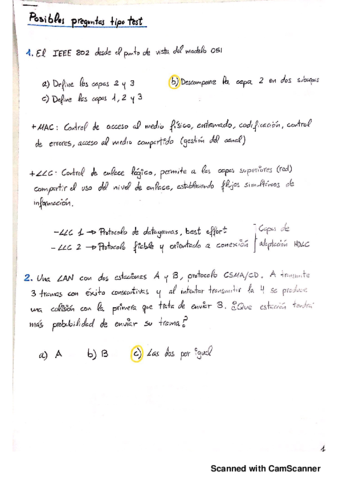 Posibles preguntas tipo test
1. El IEEE 802 desde el punto de vista del modelo OSI
a) Define las capas 2 y 3 b) Descompone la capa 2 en dos
c) Define las capas 1, 2 y 3
+ MAC: Control de acceso al medio físico, entramado, codificación, control
de errores, acceso al medio compartido (gestión del canal)
+ LLC: Control de enlace lógico, permite a las capas superiores (red)
compartir el uso del nivel de enlace, estableciendo flujos simultáneos de
información.
- LLC 1 → Protocolo de datagramas, best effort - Capas de
- LLC 2 → Protocolo fiable y orientado a conexión adaptación HDLC
2. Una LAN con dos estaciones A y B, protocolo CSMA/CD, A transmite
3 tramas con éxito consecutivas y al intentar transmitir la 4 se produce
una colisión con la primera que trata de enviar B. ¿Qué estación tendrá
más probabilidad de enviar su trama?
a) A b) B c) Las dos por igual
1
Scanned with CamScanner